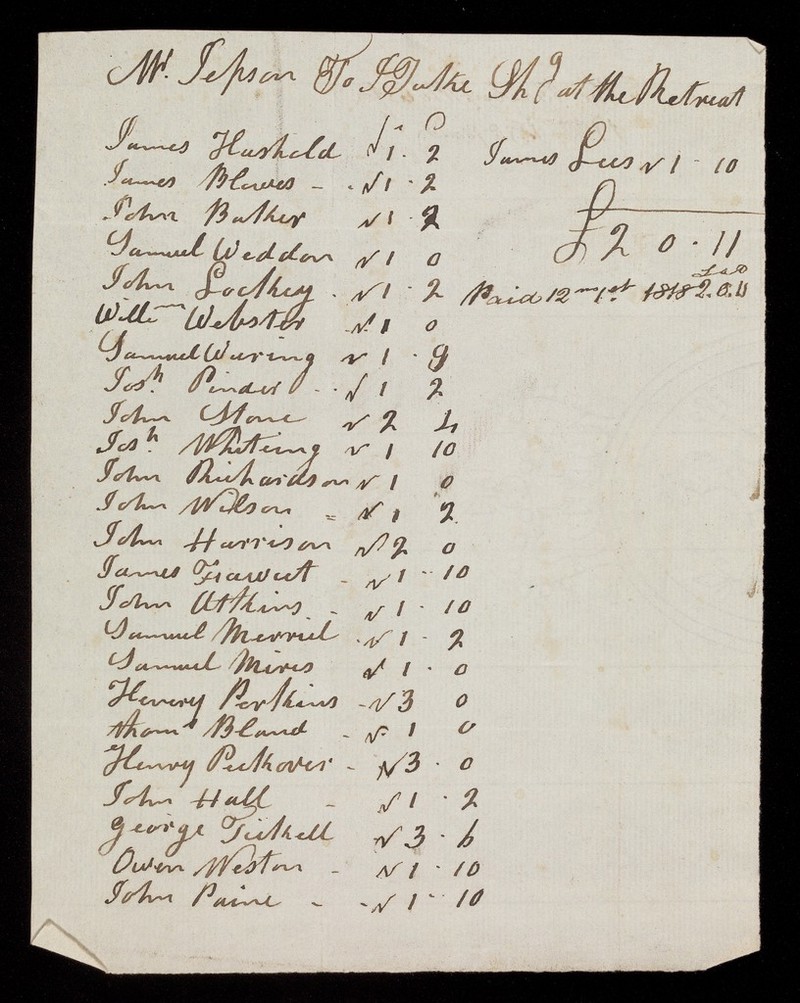 Mr. Jepson To J Tuke Shg at the Retreat
s D
James Hashold √1 · 2
James Blowes - · √1 · 2
John Baker √1 2
Samuel Weddon √1 0
John Lockey · √1 · 2
Willm Webster √1 0
Samuel Waring √1 · 9
Josh. Pinder - - √1 2
John Stone √2 4
Josh. Whiteing √1 10
John Richardson √1 0
John Wilson = √1 2
John Harrison √2 0
James - √1 - 10
John Atkins - √1 · 10
Samuel Merriel · √1 - 2
Samuel Mires √1 · 0
Henery Perkins - √3 0
thoms Bland - √1 0
Henry Peckover - √3 · 0
John Hall - √1 · 2
george Tickell √3 · 6
Owen Weston - √1 · 10
John Paine - - √1 - 10
James Lees √1 - 10
£2 0 · 11
£ s D
Paid 12 mo 1st 1818 2. 0. 11